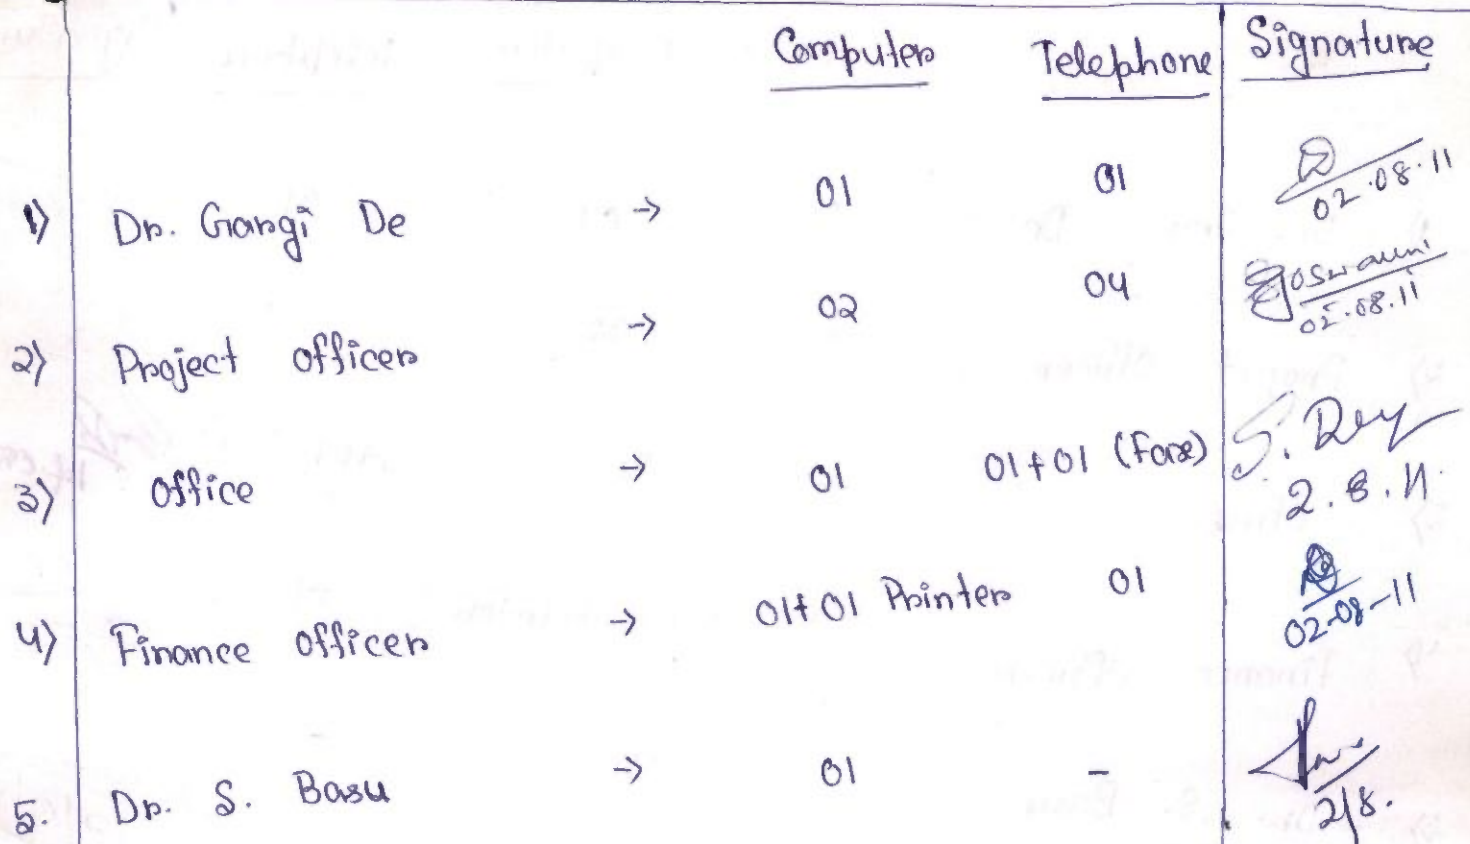 Computer Telephone Signature
1) Dr. Gargi De → 01 01 02.08.11
2) Project officer → 02 04 Goswami 02.08.11
3) office → 01 01+01 (Fax) S. Dey 2.8.11.
4) Finance officer → 01+01 Printer 01 02-08-11
5. Dr. S. Basu → 01 - 2/8.